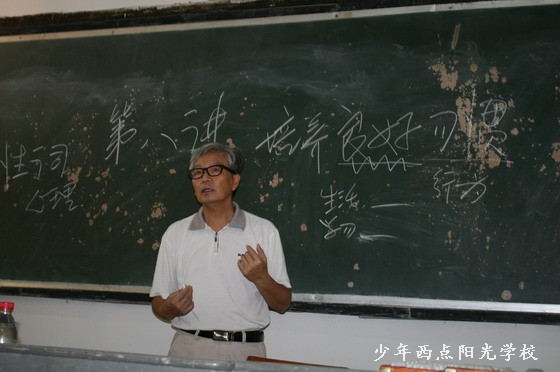 第八讲 培养良好习惯
心理
生活 —
行为
少年西点阳光学校